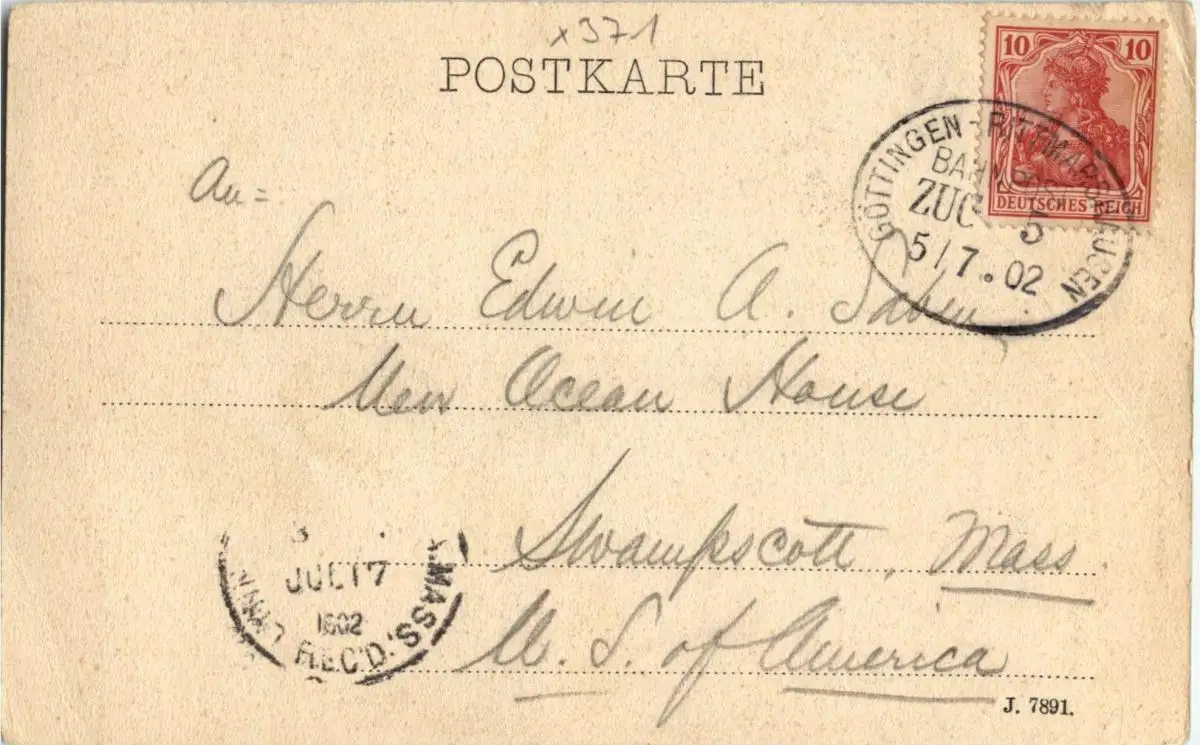 x371
POSTKARTE
10 10
DEUTSCHES REICH
GÖTTINGEN - RITTMARSHAUSEN
BAHNPOST
ZUG 5
5/7.02
An=
Herrn Edwin A. Sabin
New Ocean House
Swampscott, Mass.
U. S. of America
LYNN, MASS.
JUL 17
1902
REC'D.
J. 7891.